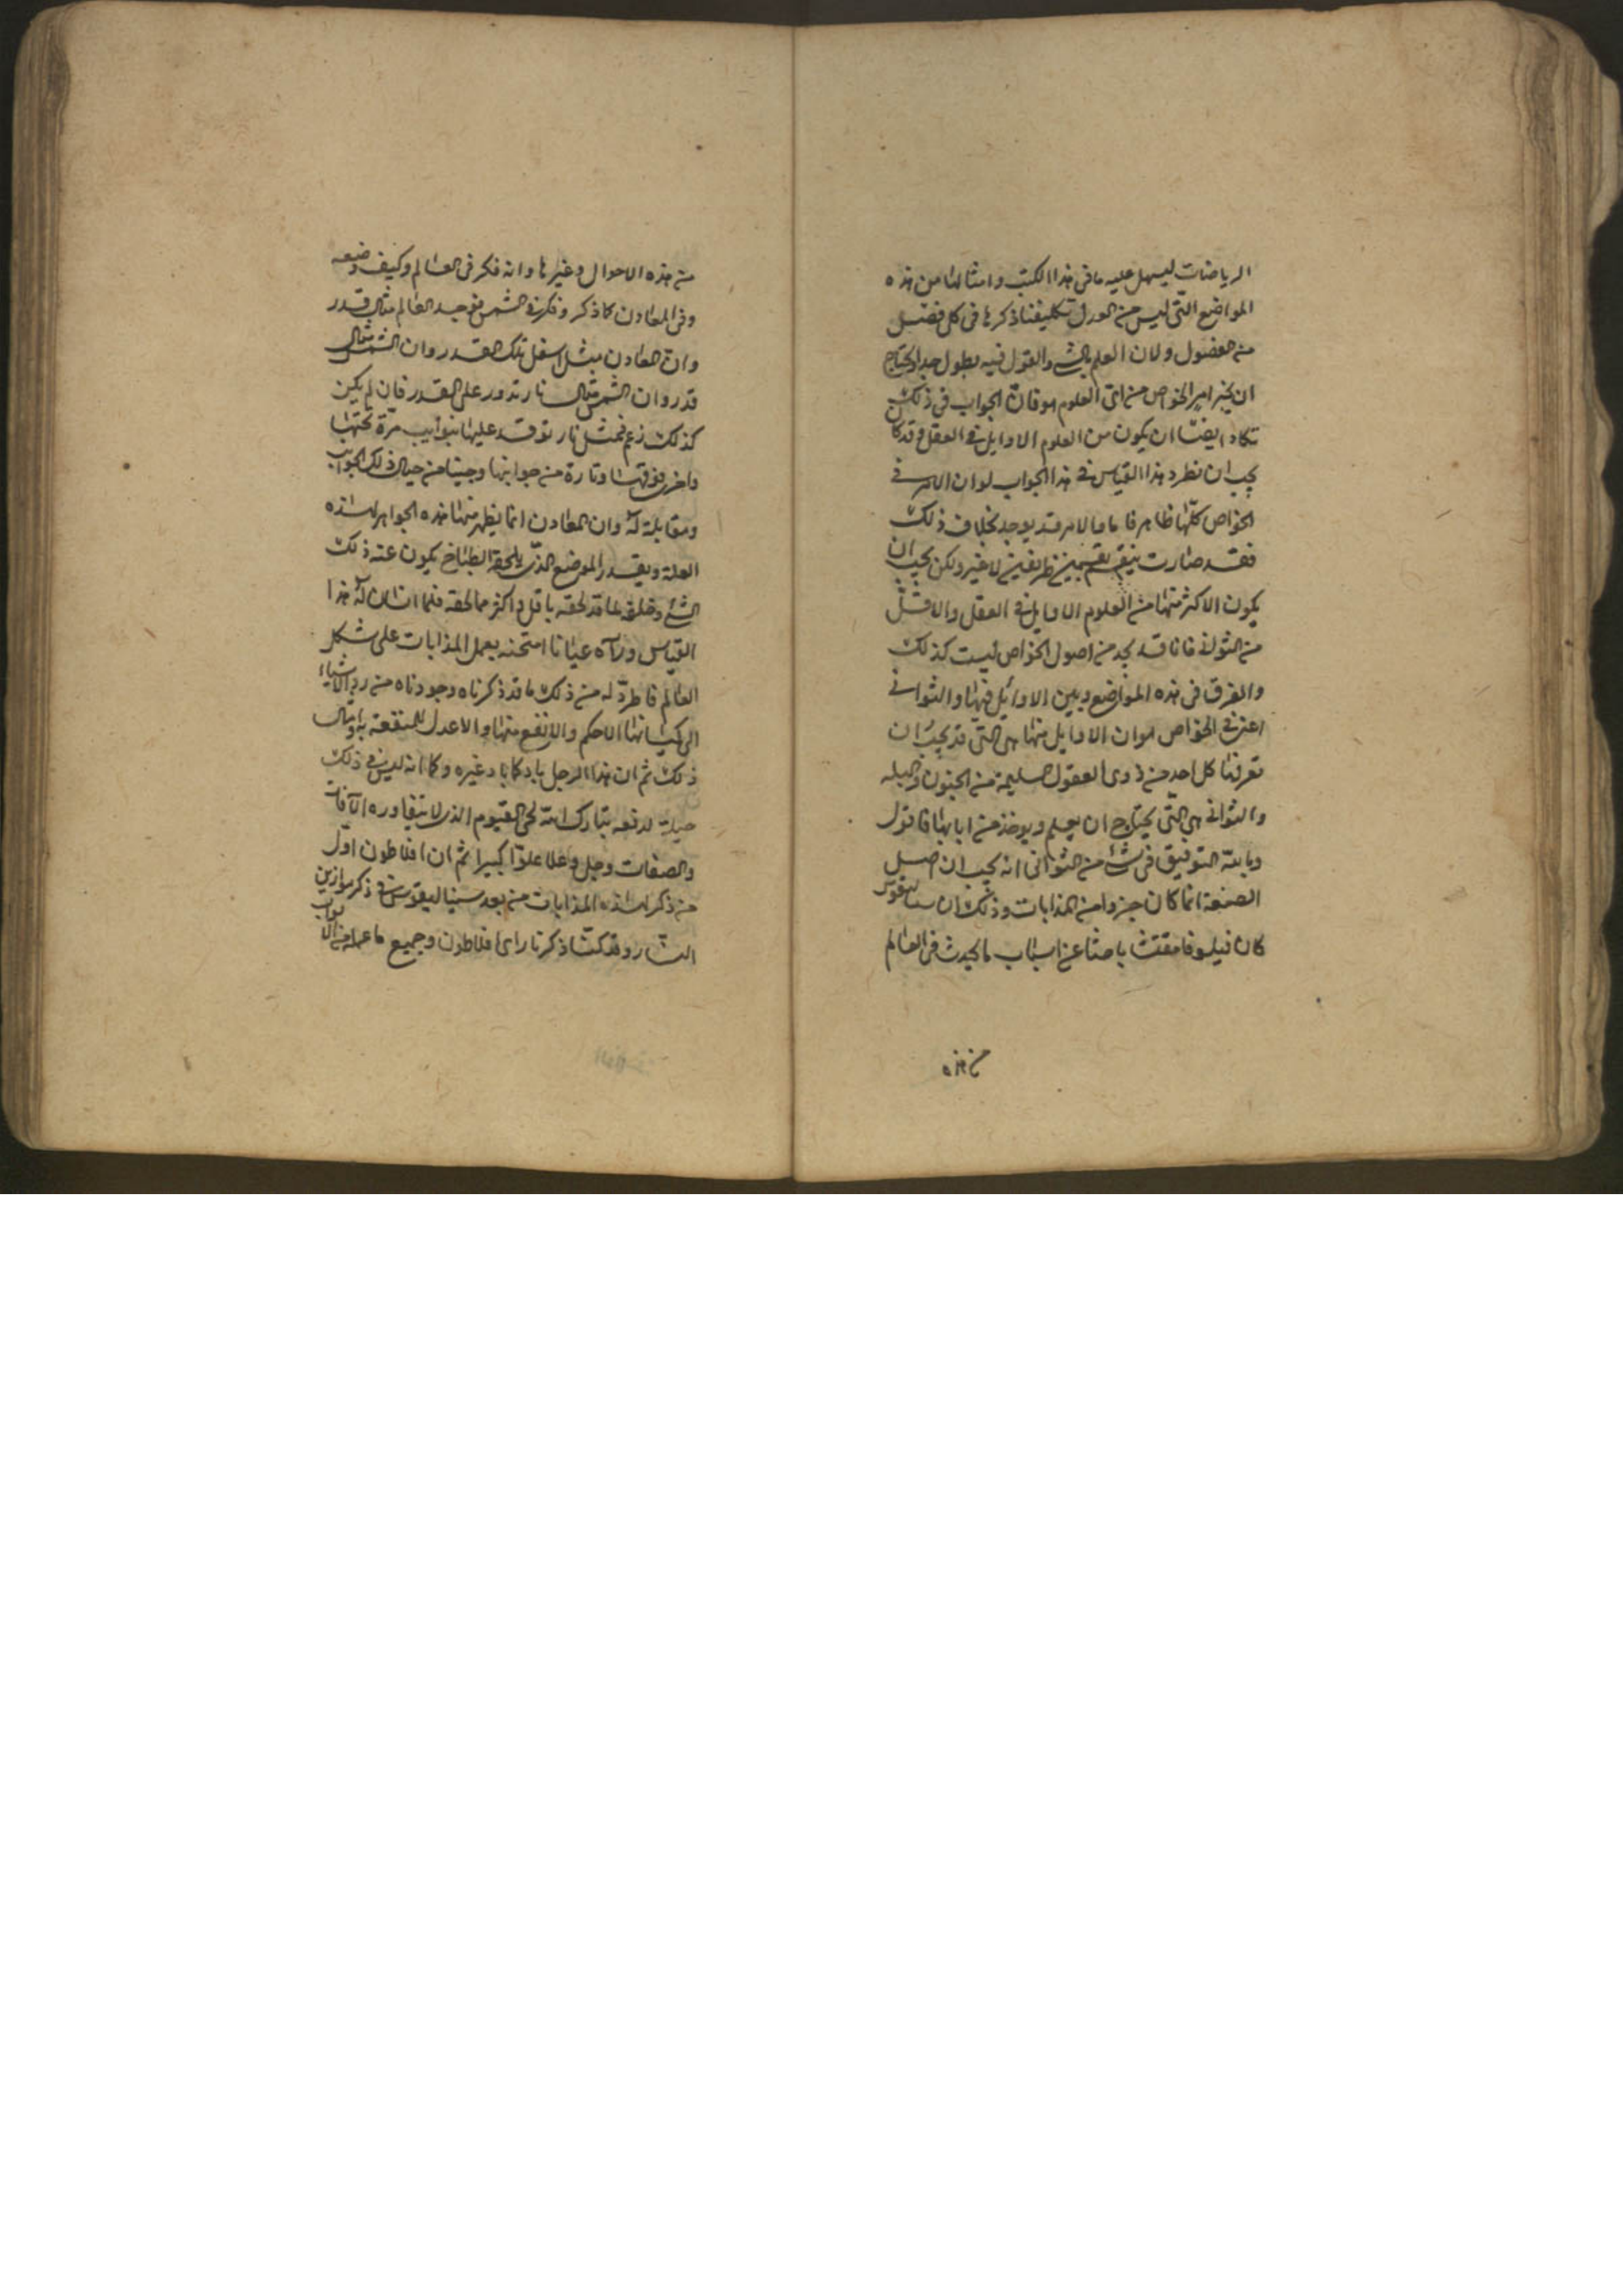 الرياضات ليسهل عليه ما فى هذا الكتب وامثالها من هذه
المواضع التى ليس من العدل تكليفنا ذكرها فى كل فصل
من الفصول ولان العلم بالشئ والقول فيه يطول جدا ويحتاج
ان يخبر امر الخواص من اى العلوم هو فان الجواب فى ذلك
تكاد ايضا ان يكون من العلوم الاوايل فى العقل وقد كان
يجب ان نطرد هذا القياس فى هذا الجواب لو ان الامر فى
الخواص كلها ظاهر فاما والامر قد يوجد بخلاف ذلك
فقد صارت ينقسم بقسمين ظريفين لا غير ولكن يجب ان
يكون الاكثر منها من العلوم الاوايل فى العقل والاقل
من الثوانى فانا قد نجد من اصول الخواص ليست كذلك
والفرق فى هذه المواضع وبين الاوائل فيها والثوانى
اعنى فى الخواص هو ان الاوايل منها هى التى قد يجب ان
تعرفها كل احد من ذوى العقول السليمة من الجنون والبله
والثوانى هى التى يحتاج ان يعلم ويوخذ من ابابها فاقول
وبالله التوفيق فى شئ من الثوانى انه يجب ان اصل
الصنعة انما كان جزوا من المذابات وذلك ان
كان فيلسوفا مفتشا باحثا عن اسباب ما يحدث فى العالم
من هذه
من هذه الاحوال وغيرها وانه فكر فى العالم وكيف وضعه
وفى المعادن كما ذكر وفكر فى الشمس فوجد العالم مثال قدر
وان المعادن مثل اسفل تلك القدر وان الشمس مثال
قدر وان الشمس مثال نار تدور على القدر فان لم يكن
كذلك زعم فمثل نار توقد عليها بنوايب مرة تحتها
واخرى فوقها وتارة من جوانبها وحينا من حيال ذلك الجوانب
ومقابلة له وان المعادن انما يظهر منها هذه الجواهر لهذه
العلة وبقدر الموضع الذى يلحقه الطباخ يكون عنه ذلك
الشئ وخلق لما قد لحقه باقل او اكثر مما لحقه فلما ان له هذا
القياس ورآه عيانا امتحنه بعمل المذابات على شكل
العالم فاطرد له من ذلك ما قد ذكرناه وجودناه من رد الاشياء
الى كيانها الاحكم والانفع منها والاعدل للمنفعة به وامثال
ذلك ثم ان هذا الرجل باد كما باد غيره وكما انه ليس فى ذلك
حيلة لدفعه تبارك الله الحى القيوم الذى لا تتعاوره الآفات
والصفات وجل وعلا علوا كبيرا ثم ان افلاطون اول
من ذكر هذه المذابات من بعد فى ذكر موازين
النار وقد كنا ذكرنا راى افلاطون وجميع ما عمله من الابواب